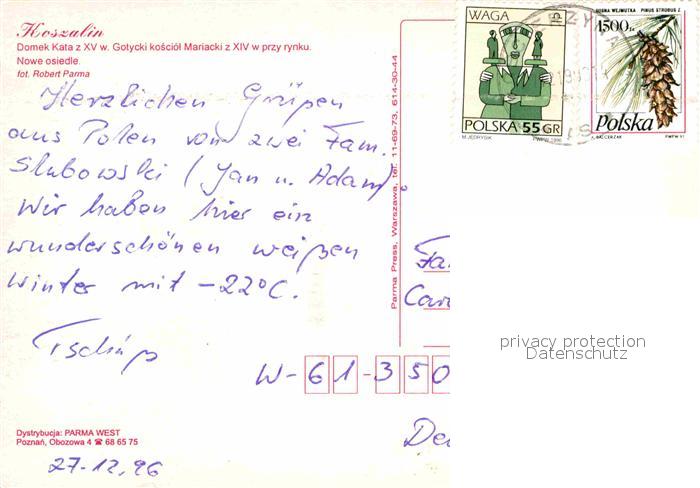 Koszalin
Domek Kata z XV w. Gotycki kościół Mariacki z XIV w przy rynku.
Nowe osiedle.
fot. Robert Parma
WAGA
POLSKA 55 GR
M. JĘDRYSIK PWPW 1996
SOSNA WEJMUTKA PINUS STROBUS Z.
4500 zł
Polska
PWPW 91
Herzlichen Grüßen
aus Polen von zwei Fam.
Slubowski (Jan u. Adam)
Wir haben hier ein
wunderschönen weißen
Winter mit -22°C.
Tschüß
Parma Press, Warszawa, tel. 11-69-73, 614-30-44
Fa
Car
W-61-350
De
privacy protection
Datenschutz
Dystrybucja: PARMA WEST
Poznań, Obozowa 4 ☎ 68 65 75
27.12.96